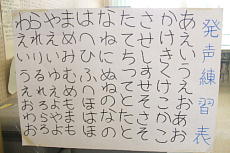 発声練習表
あえいうえおあお
かけきくけこかこ
させしすせそさそ
たてちつてとたと
なねにぬねのなの
はへひふへほはほ
まめみむめもまも
やえいゆえよやよ
られりるれろらろ
わえいうえおわお